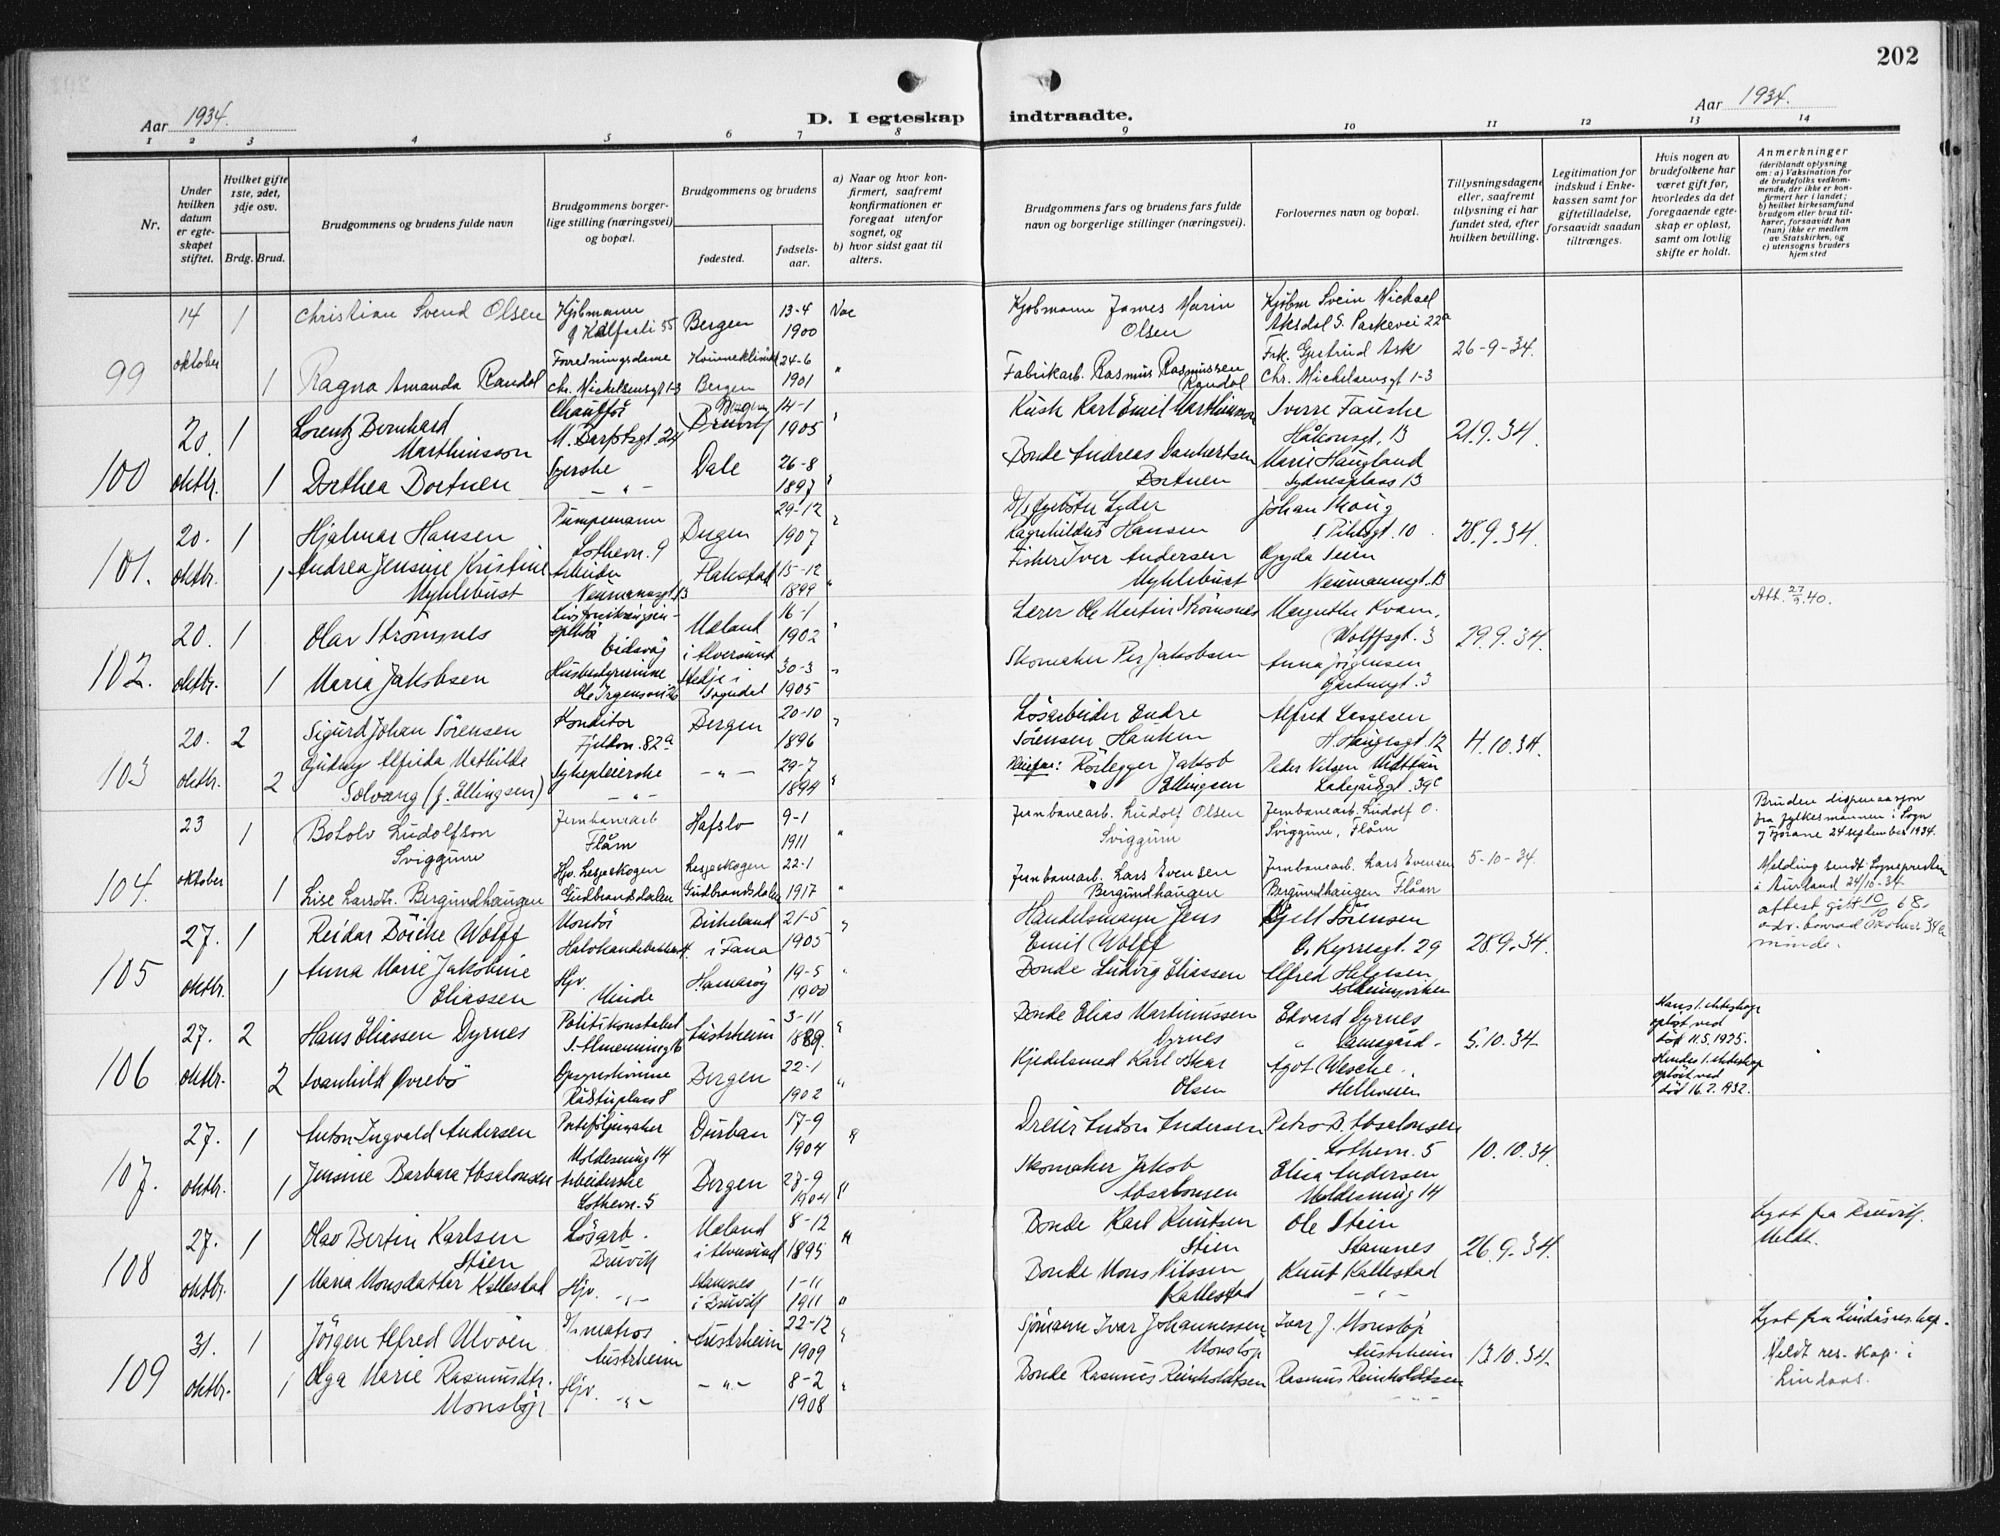 202
Aar 1934.
D. I egteskap indtraadte.
Aar 1934.
1 2 3 4 5 6 7 8 9 10 11 12 13 14
Nr.
Under hvilken datum er egteskapet stiftet.
Hvilket gifte 1ste, 2det, 3dje osv.
Brdg. Brud.
Brudgommens og brudens fulde navn
Brudgommens borgerlige stilling (næringsvei) og bopæl.
Brudgommens og brudens
fødested.
fødselsaar.
a) Naar og hvor konfirmert, saafremt konfirmationen er foregaat utenfor sognet, og
b) hvor sidst gaat til alters.
Brudgommens fars og brudens fars fulde navn og borgerlige stillinger (næringsvei).
Forlovernes navn og bopæl.
Tillysningsdagene eller, saafremt tillysning ei har fundet sted, efter hvilken bevilling.
Legitimation for indskud i Enkekassen samt for giftetilladelse, forsaavidt saadan tiltrænges.
Hvis nogen av brudefolkene har været gift før, hvorledes da det foregaaende egteskap er opløst, samt om lovlig skifte er holdt.
Anmerkninger
(deriblandt oplysning om: a) Vaksination for de brudefolks vedkommende, der ikke er konfirmert her i landet; b) hvilket kirkesamfund brudgom eller brud tilhører, forsaavidt han (hun) ikke er medlem av Statskirken, og c) utensogns bruders hjemsted
99 14 oktober
1 Christian Svend Olsen Kjøbmann Kalfarli 55 Bergen 13-4 1900 Kjøbmann James Marin Olsen Kjøbm Svein Michael Aksdal S. Parkevei 22a
1 Ragna Amanda Randal Forretningsdame Chr. Michelsensgt 1-3 Kvinneklinikk Bergen 24-6 1901 " Fabrikarb. Rasmus Rasmussen Randal Frk. Gjertrud Ask Chr. Michelsensgt 1-3 26-9-34.
100 20. oktbr.
1 Lorentz Bernhard Marthinsson Chauffør 24 Bergen 14-1 1905 " Kusk Karl Emil Marthinsson Sverre Fauske Håkonsgt. 13 21.9.34.
1 Dorthea Dortnen Syerske - " - Dale 26-8 1897 " Bonde Andreas Dortnen Marie Haugland Sydnesplass 13
101. 20. oktbr.
1 Hjalmar Hansen Pumpemann Lothevn. 9 Bergen 29-12 1907 " Lyder Hansen Johan Skaug 10 28.9.34.
1 Andrea Jensine Kristine Myklebust Arbeider Neumannsgt. 13 Flakstad 15-12 1899 " Fisker Iver Andersen Myklebust Gyda Neumannsgt. 13
102. 20 oktbr.
1 Olav Strømsnes Eidsvåg Mæland i Alversund 16-1 1902 " Lærer Ole Martin Strømsnes Margrethe Kvam, Wolffsgt. 3 29.9.34.
Att. 27/9.40.
1 Maria Jakobsen Husbestyrerinne Ole Irgensvei 26 i Sogndal 30-3 1905 " Skomaker Per Jakobsen Anna Jørgensen 3
103 20. oktbr.
2 Sigurd Johan Sørensen Konditor Fjeldvn. 82a Bergen 20-10 1896 " Løsarbeider Endre Sørensen Hauken Alfred Lassesen H. Haugesgt. 12 4.10.34.
2 Gudny Alfrida Mathilde Solvang (f. Ellingsen) Sykepleierske - " - - " - 29-7 1894 " Rørlegger Jakob Ellingsen Peder Nilsen Ladegårdsgt. 39c
104. 23 oktober
1 Botolv Ludolfson Sviggum Jernbanearb Flåm Hafslo 9-1 1911 " Jernbanearb. Ludolf Olsen Sviggum Jernbanearb. Ludolf O. Sviggum, Flåm
1 Lise Larsdtr. Bergundhaugen Hjv. Lesjeskogen Gudbrandsdalen Lesjeskogen Gudbrandsdalen 22-1 1917 " Jernbanearb. Lars Evensen Bergundhaugen Jernbanearb. Lars Evensen Bergundhaugen Flåm 5-10-34.
Bruden dispensasjon fra fylkesmannen i Sogn og Fjordane 24 september 1934.
Melding sendt Sognepresten i Aurland 24/10-34
attest gitt 10/10 68.
105 27. oktbr.
1 Reidar Böicke Wolff Montør Birkeland i Fana 21-5 1905 " Handelsmann Jens Emil Wolff Kjell Sørensen O. Kyrresgt. 29 28.9.34.
1 Anna Marie Jakobine Eliassen Hjv. Minde Hamarøy 19-5 1900 " Bonde Ludvig Eliassen Alfred Helgesen Solheimsviken
106 27. oktbr.
2 Hans Eliassen Dyrnes Politikonstabel S. Almenning 16 Austrheim 3-11 1889. " Bonde Elias Martinussen Dyrnes Edvard Dyrnes 5.10.34.
Hans 1. ekteskap opløst ved død 11.5.1925.
2 Svanhild Øvrebö Bergen 22-1 1902 " Kjedelsmed Karl Oskar Olsen Agot Wesche Helleveien
Hendes 1. ekteskap opløst ved død 16.2.1932.
107. 27. oktbr.
1 Anton Ingvald Andersen 14 Durban 17-9 1904 " Dreier Anton Andersen Petra B. Absalonsen Lothevn. 5 10.10.34.
1 Jensine Barbara Absalonsen Arbeiderske Lothevn. 5 Bergen 27-9 1904 " Skomaker Jakob Absalonsen Elisa Andersen 14
108 27. oktbr.
1 Olav Bertin Karlsen Stien Løsarb. Bruvik Mæland i Alversund 8-12 1895 " Bonde Karl Knutsen Stien Ole Stien Stamnes 26.9.34.
Lyst fra Bruvik. Meldt.
1 Maria Monsdatter Kallestad Hjv. - " - Stamnes i Bruvik 1-11 1911 " Bonde Mons Nilssen Kallestad Knut Kallestad - " -
109 31. oktbr.
1 Jörgen Alfred Ulvöen matros Austrheim Austrheim 22-12 1909 " Sjömann Ivar Johannessen Monslop Ivar J. Monslop Austrheim 13.10.34.
Lyst fra Lindås res. kap. Meldt res. kap. i Lindaas.
1 Olga Marie Rasmusdtr. Monslop Hjv. - " - - " - 8-2 1908 " Bonde Rasmus Reinholdtsen Rasmus Reinholdtsen